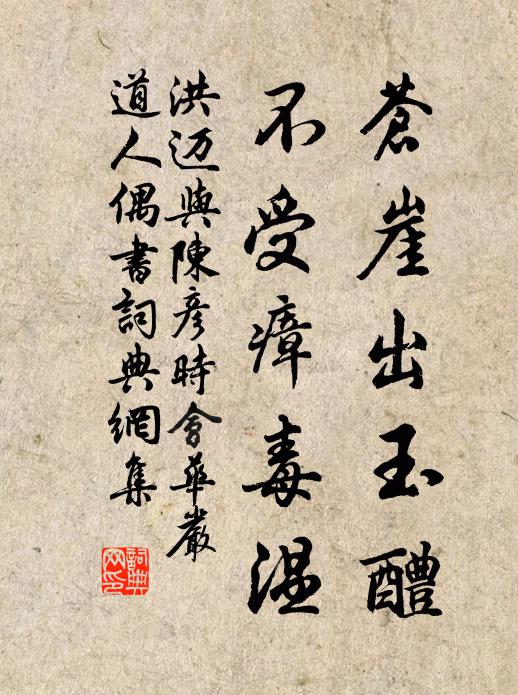 蒼崖出玉醴
不受瘴毒溼
洪迈與陳彥時會華嚴
道人偶書詞典網集
詞典网印